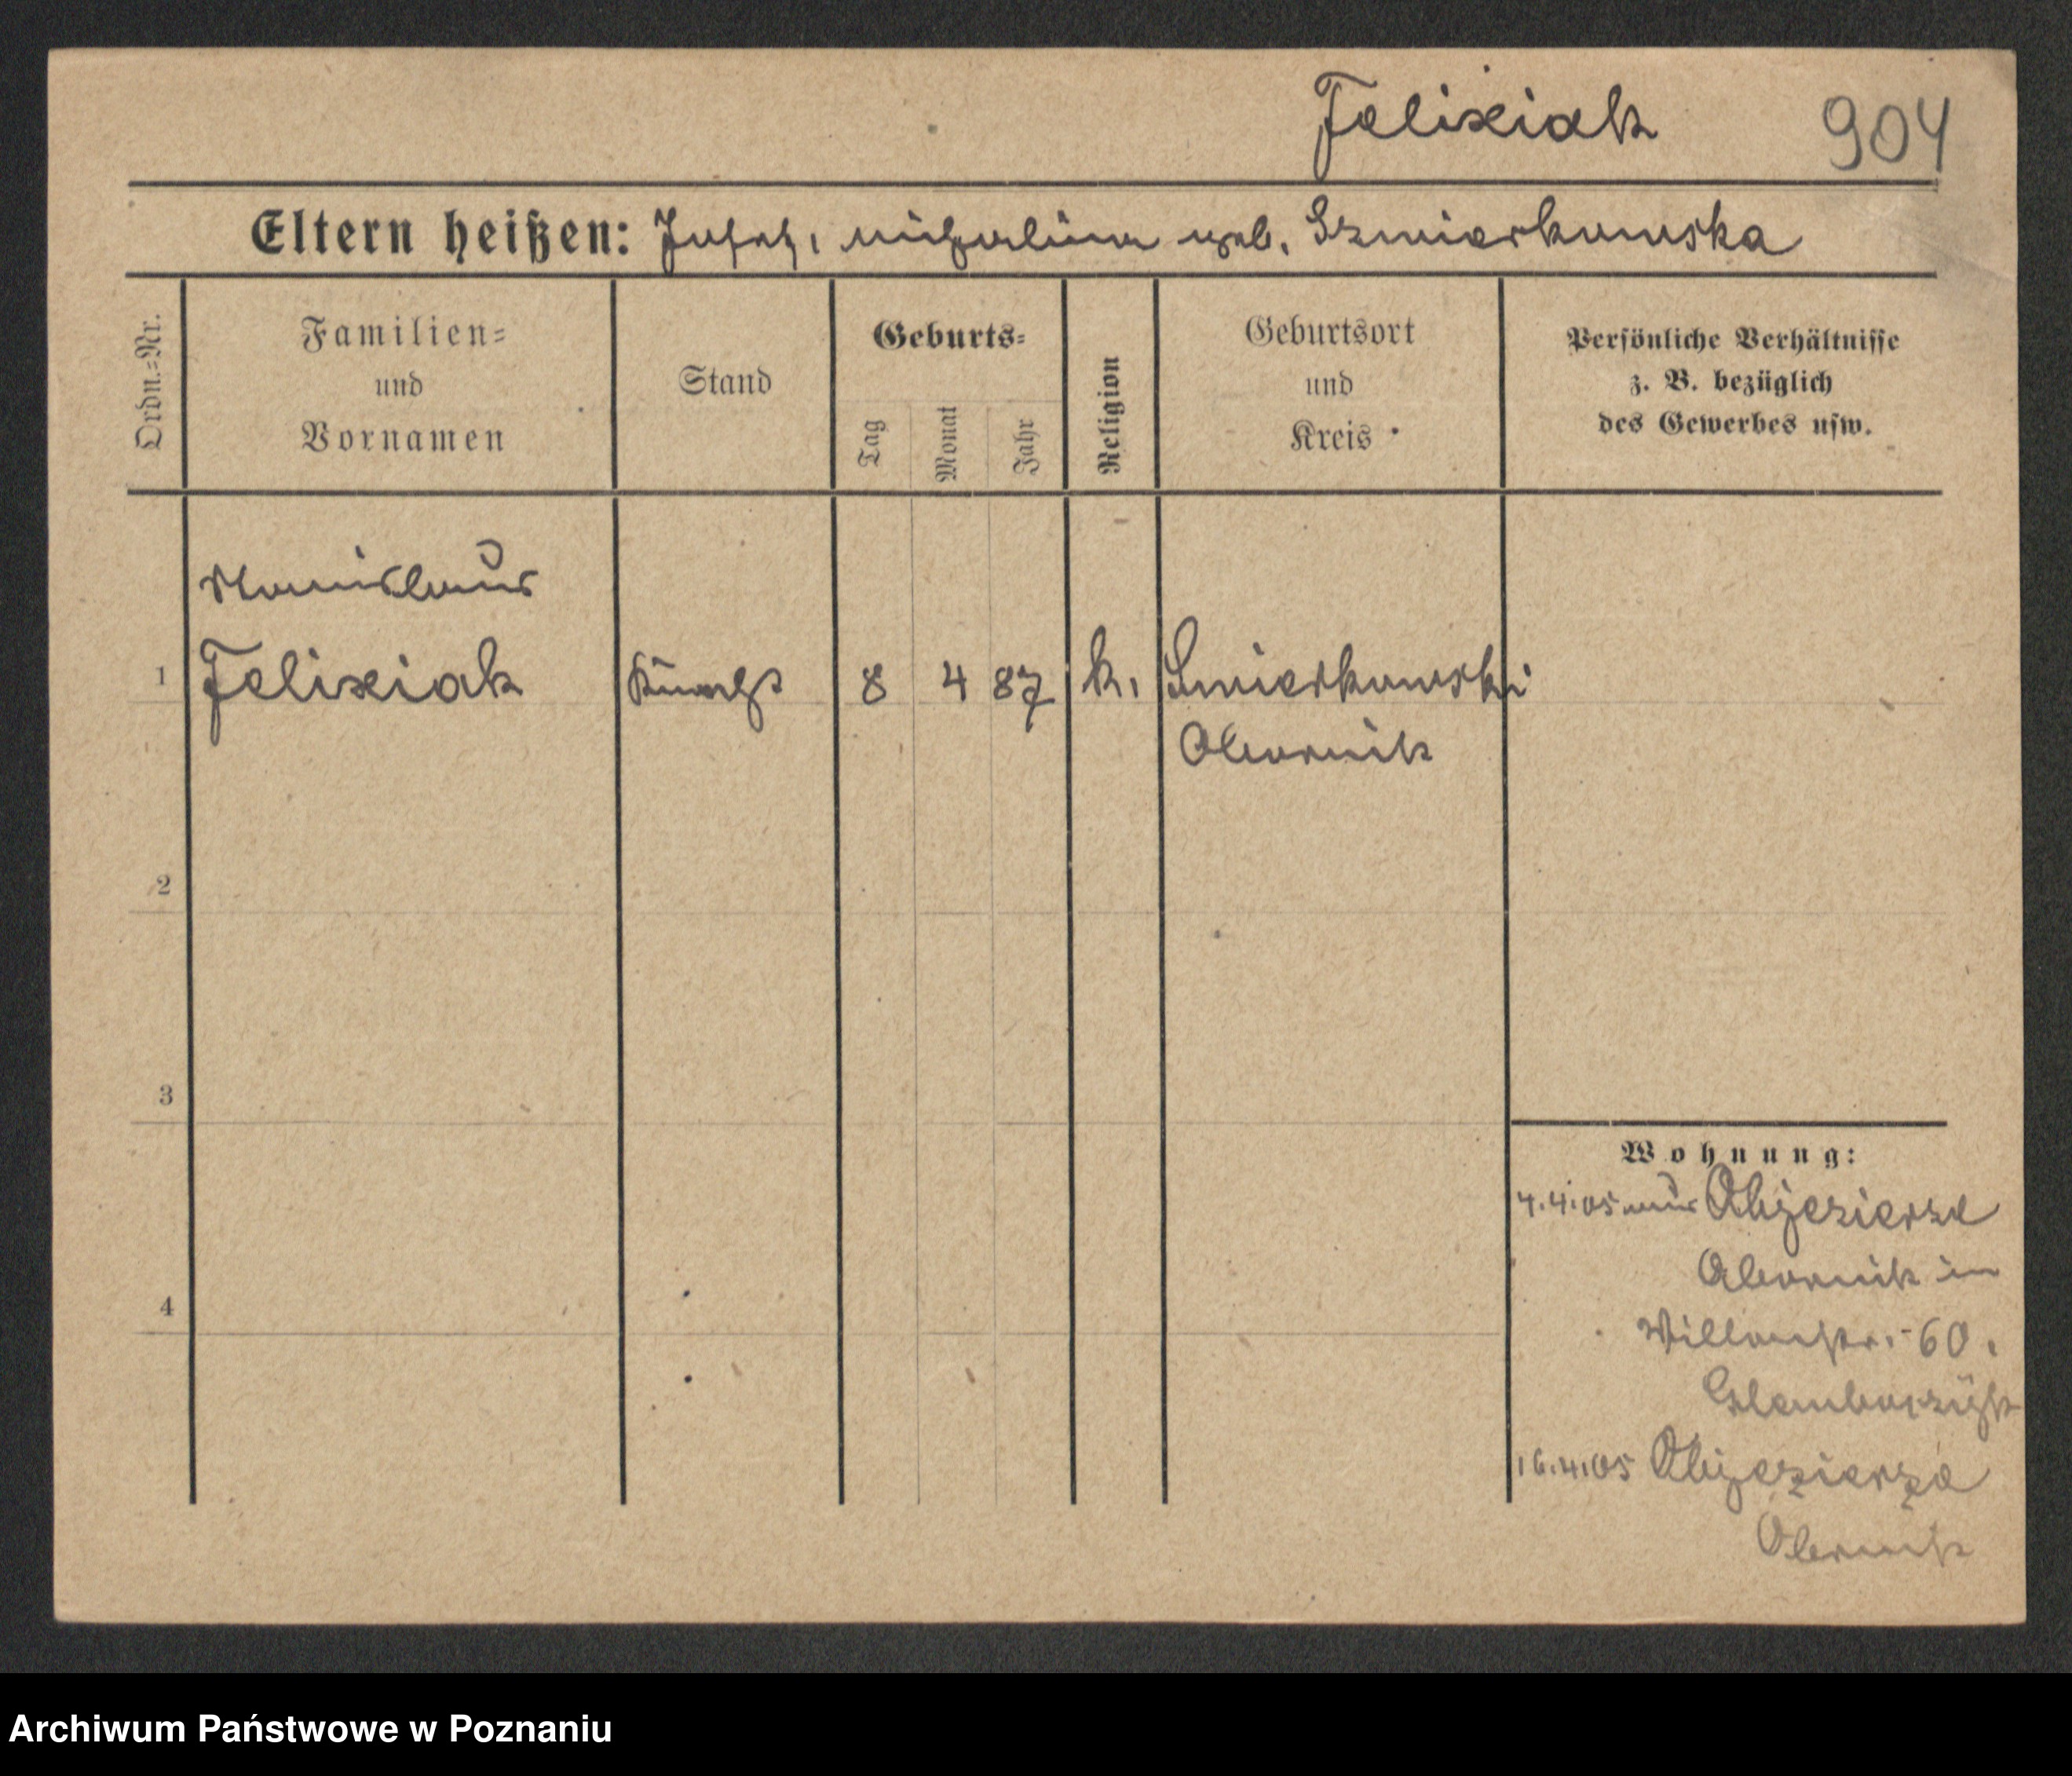 Felixiak 904
Eltern heißen: Josef, Michalina geb. Szmierkowska
Ordn.=Nr.
Familien=
und
Vornamen
Stand
Geburts=
Tag
Monat
Jahr
Religion
Geburtsort
und
Kreis
Persönliche Verhältnisse
z. B. bezüglich
des Gewerbes usw.
Stanislaus
1 Felixiak Knecht 8 4 87 k.
Obornik
2
3
4
Wohnung:
4.4.05 aus Objezierze
Obornik in
60.
16.4.05 Objezierze
Obornik
Archiwum Państwowe w Poznaniu